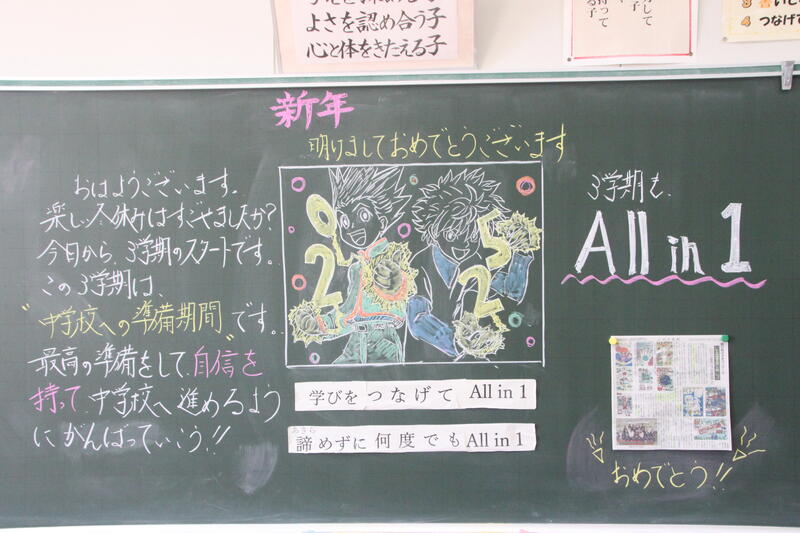 よさを認め合う子
心と体をきたえる子
4 つなげて
新年
明けましておめでとうございます
おはようございます。
楽しい冬休みはすごせましたか?
今日から、3学期のスタートです。
この3学期は、
"中学校への準備期間"です。
最高の準備をして、自信を
持って中学校へ進めるよう
にがんばっていこう!!
2025
学びをつなげて All in 1
諦めずに何度でも All in 1
あきら
3学期も、
All in 1
おめでとう!!